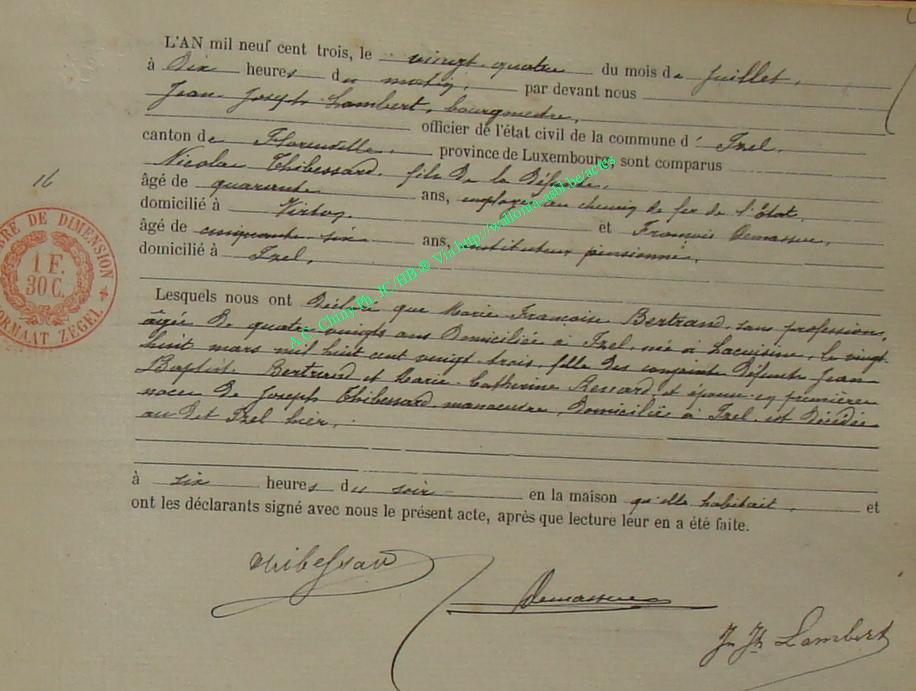 L'AN mil neuf cent trois, le vingt quatre du mois de juillet,
à Dix heures du matin, par devant nous
Jean Joseph Lambert, bourgmestre,
officier de l'état civil de la commune d' Izel,
canton de Florenville, province de Luxembourg, sont comparus
Nicolas Thibessard, fils de la Défunte,
âgé de quarante ans, employé au chemin de fer de l'État,
domicilié à Virton, et François Demasure,
âgé de cinquante six ans, instituteur pensionné,
domicilié à Izel,
16
TIMBRE DE DIMENSION
1 F.
30 C.
FORMAAT ZEGEL
A.C. Chiny Ph. JC/HB © Via http://wallonia-asbl.be/actes
Lesquels nous ont Déclaré que Marie Françoise Bertrand, sans profession,
âgée de quatre vingts ans Domiciliée à Izel, née à Lacuisine, le vingt
huit mars mil huit cent vingt trois, fille des conjoints défunts Jean
Baptiste Bertrand et Marie Catherine et épouse en premières
noces de Joseph Thibessard, manoeuvre, Domiciliée à Izel, est Décédée
au dit Izel hier,
à six heures du soir en la maison qu'elle habitait, et
ont les déclarants signé avec nous le présent acte, après que lecture leur en a été faite.
Thibessard
Demasure
Jn Jh Lambert